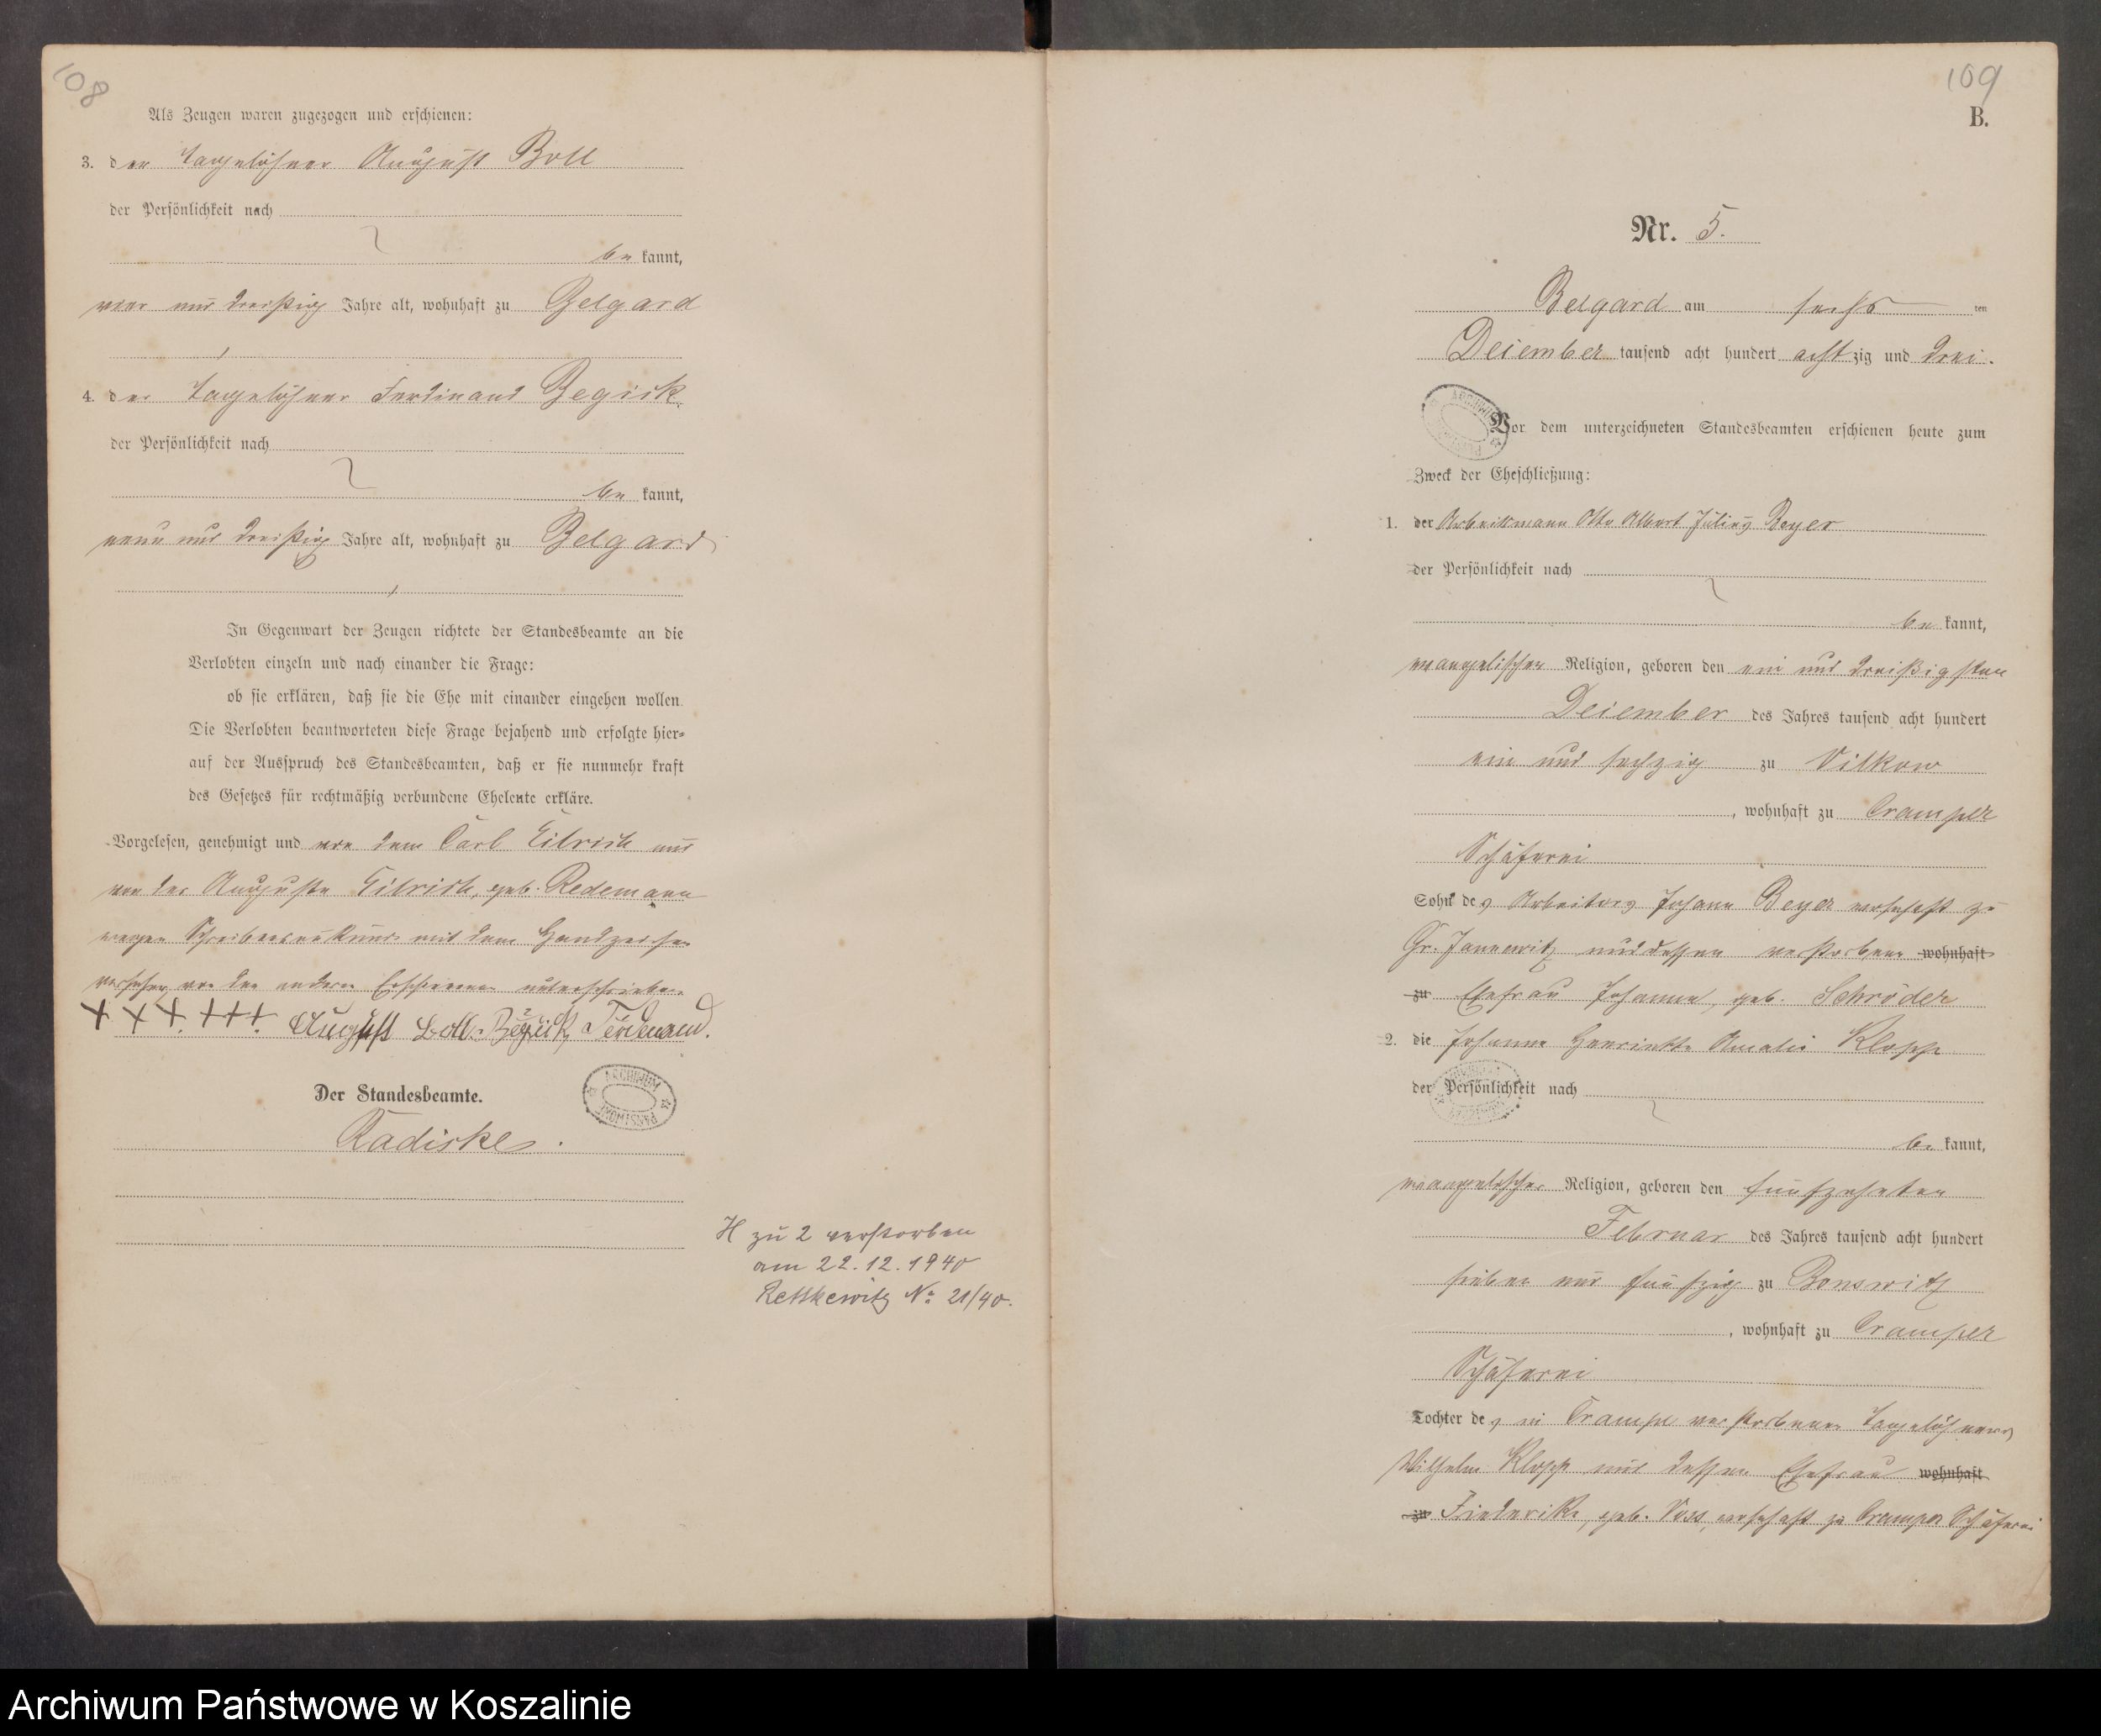 108
Als Zeugen waren zugezogen und erschienen:
3. der Tagelöhner August Boll
der Persönlichkeit nach
be kannt,
vier und dreißig Jahre alt, wohnhaft zu Belgard
4. der Tagelöhner Ferdinand Begick
der Persönlichkeit nach
be kannt,
neun und dreißig Jahre alt, wohnhaft zu Belgard
In Gegenwart der Zeugen richtete der Standesbeamte an die
Verlobten einzeln und nach einander die Frage:
ob sie erklären, daß sie die Ehe mit einander eingehen wollen.
Die Verlobten beantworteten diese Frage bejahend und erfolgte hier-
auf der Ausspruch des Standesbeamten, daß er sie nunmehr kraft
des Gesetzes für rechtmäßig verbundene Eheleute erkläre.
Vorgelesen, genehmigt und von dem Carl und
von der Auguste geb. Redemann
wegen Schreibensunkunde mit dem Handzeichen
versehen, von den anderen Erschienenen unterschrieben
+ + +. +++. August Boll. Begick Ferdenand.
Der Standesbeamte.
Radiske.
ARCHIWUM PAŃSTWOWE
H zu 2 verstorben
am 22.12.1940
Rettkewitz No 21/40.
109
B.
Nr. 5.
Belgard am sechs ten
Dezember tausend acht hundert achtzig und drei.
Vor dem unterzeichneten Standesbeamten erschienen heute zum
Zweck der Eheschließung:
1. der Arbeitsmann Otto Albert Julius Beyer
der Persönlichkeit nach
be kannt,
evangelischer Religion, geboren den ein und dreißigsten
Dezember des Jahres tausend acht hundert
ein und sechzig zu Vilkow
, wohnhaft zu Cramper
Schäferei
Sohn des Arbeiters Johann Beyer wohnhaft zu
Gr. Jannewitz und dessen verstorbene wohnhaft
zu Ehefrau Johanna, geb. Schröder
2. die Johanne Henriette Amalie Klopp
der Persönlichkeit nach
be kannt,
evangelischer Religion, geboren den fünfzehnten
Februar des Jahres tausend acht hundert
sieben und fünfzig zu Bonswitz
, wohnhaft zu Cramper
Schäferei
Tochter des in Crampe verstorbenen Tagelöhners
Wilhelm Klopp und dessen Ehefrau wohnhaft
zu Friederike, geb. Voss, wohnhaft zu Cramper Schäferei
Archiwum Państwowe w Koszalinie